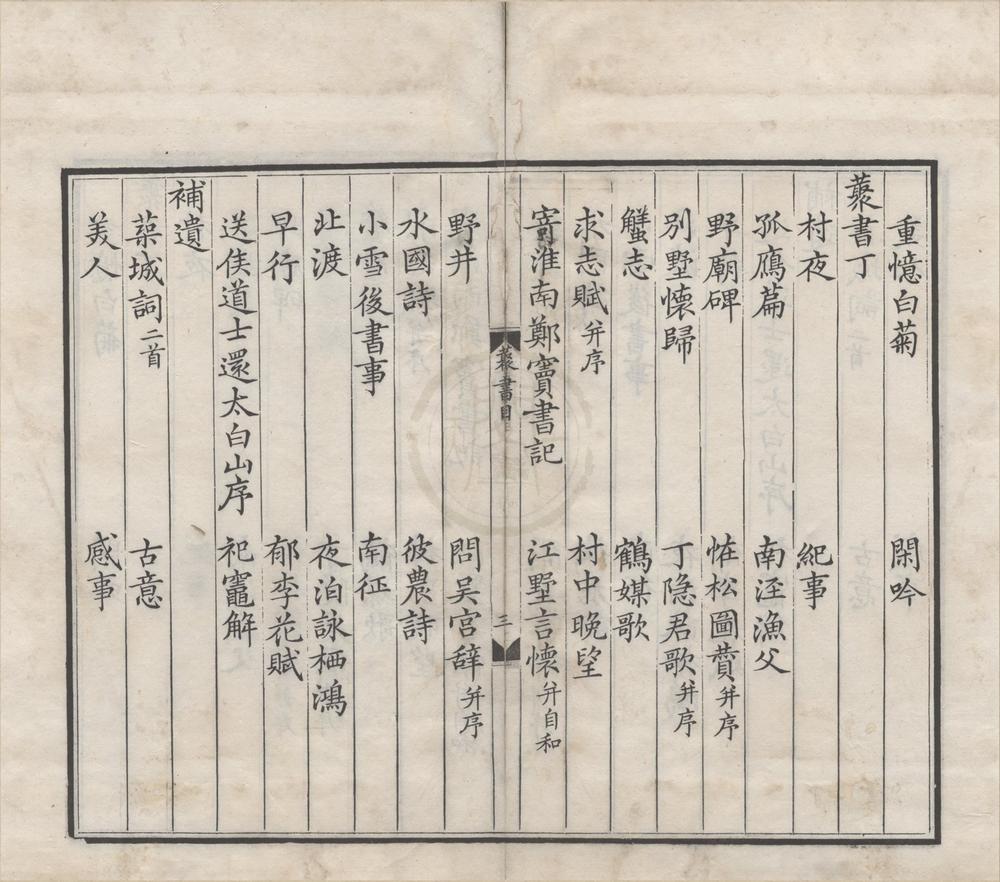 重憶白菊　閑吟
藂書丁
村夜　紀事
孤鴈篇　南涇漁父
野廟碑　恠松圖賛并序
別墅懷歸　丁隱君歌并序
蟹志　鶴媒歌
求志賦并序　村中晚望
寄淮南鄭賓書記　江墅言懷并自和
藂書目　三
野井　問吴宮辞并序
水國詩　彼農詩
小雪後書事　南征
北渡　夜泊詠栖鴻
早行　郁李花賦
送侯道士還太白山序　祀竈解
補遺
築城詞二首　古意
美人　感事